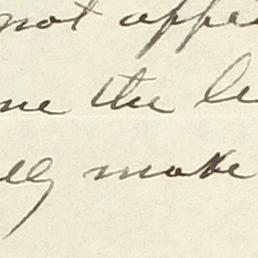 not appe
me the le
ly make